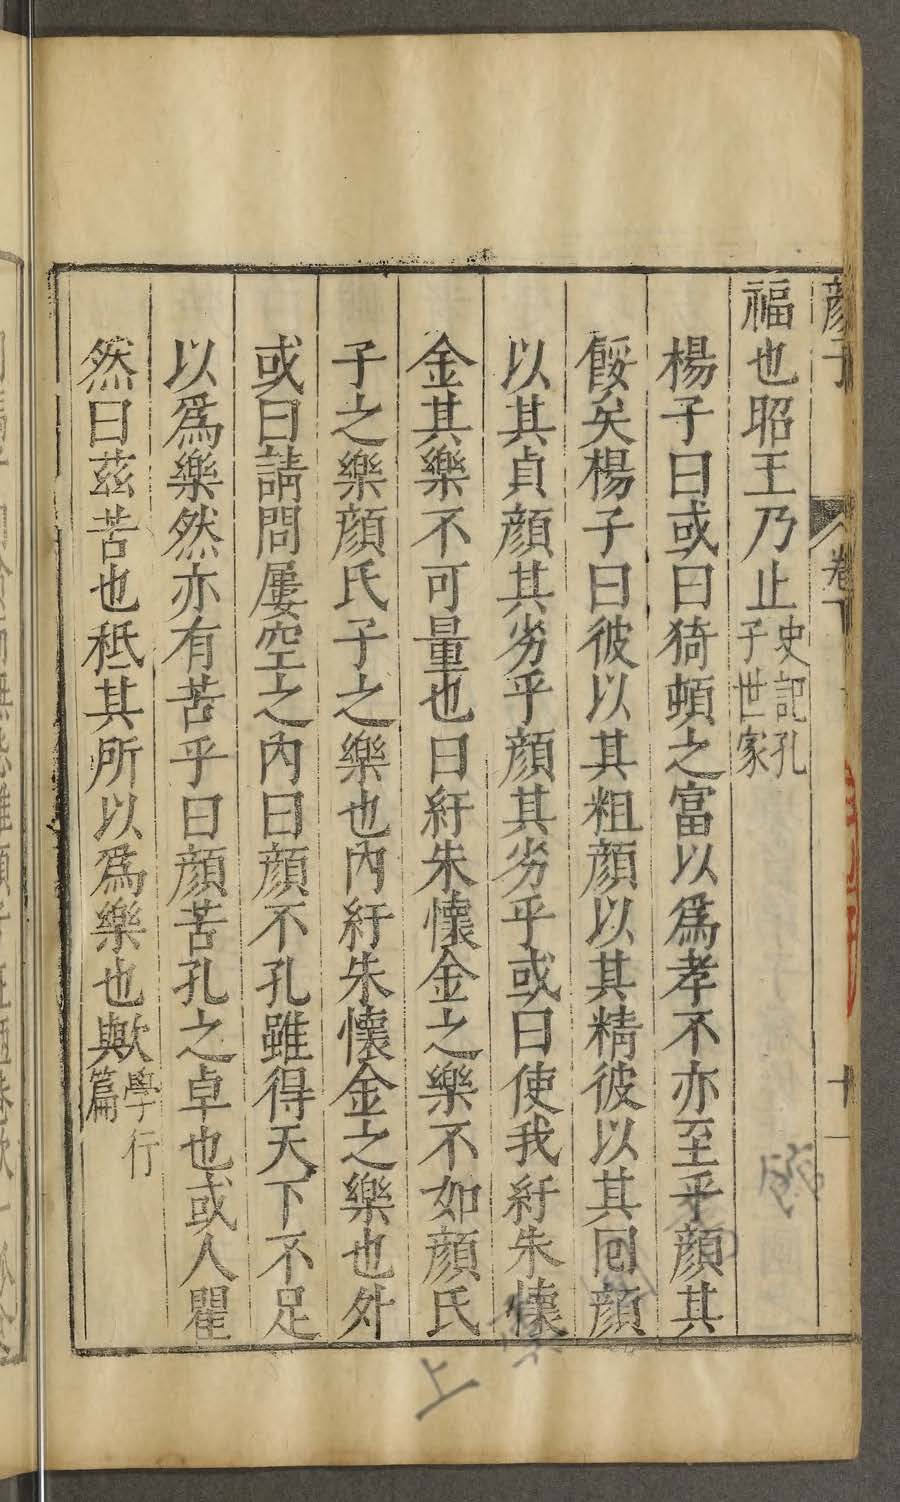 顏子
卷下
十
福也昭王乃止史記孔子世家
楊子曰或曰猗頓之富以爲孝不亦至乎顏其
餒矣楊子曰彼以其粗顏以其精彼以其囘顏
以其貞顏其劣乎顏其劣乎或曰使我紆朱懷
金其樂不可量也曰紆朱懷金之樂不如顏氏
子之樂顏氏子之樂也內紆朱懷金之樂也外
或曰請問屢空之內曰顏不孔雖得天下不足
以爲樂然亦有苦乎曰顏苦孔之卓也或人瞿
然曰茲苦也秪其所以爲樂也歟學行篇